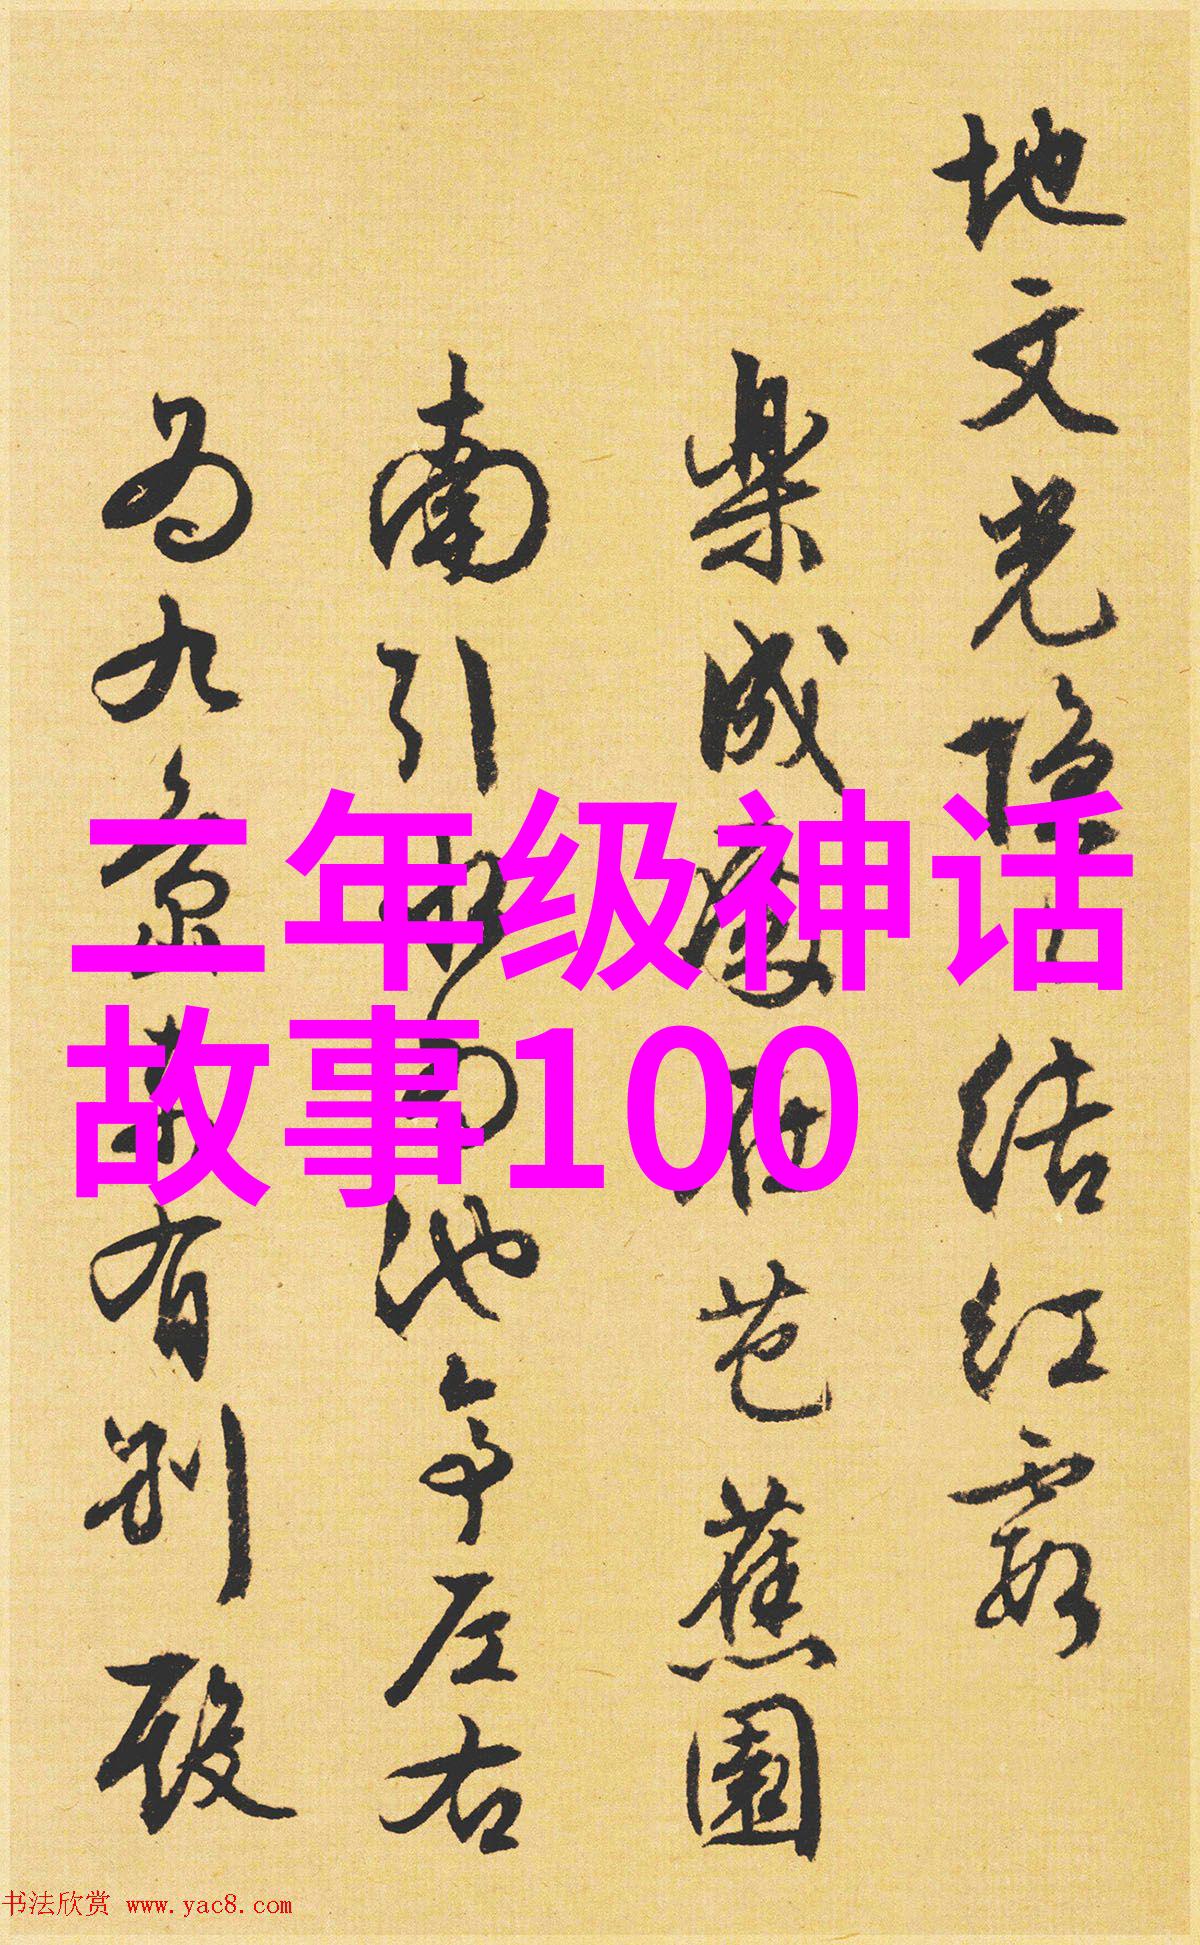 地文光隐结红霞
樂成在芭蕉園
南引池亭左右
为九有别殿
二年级神话
故事100
书法欣赏 www.yac8.com